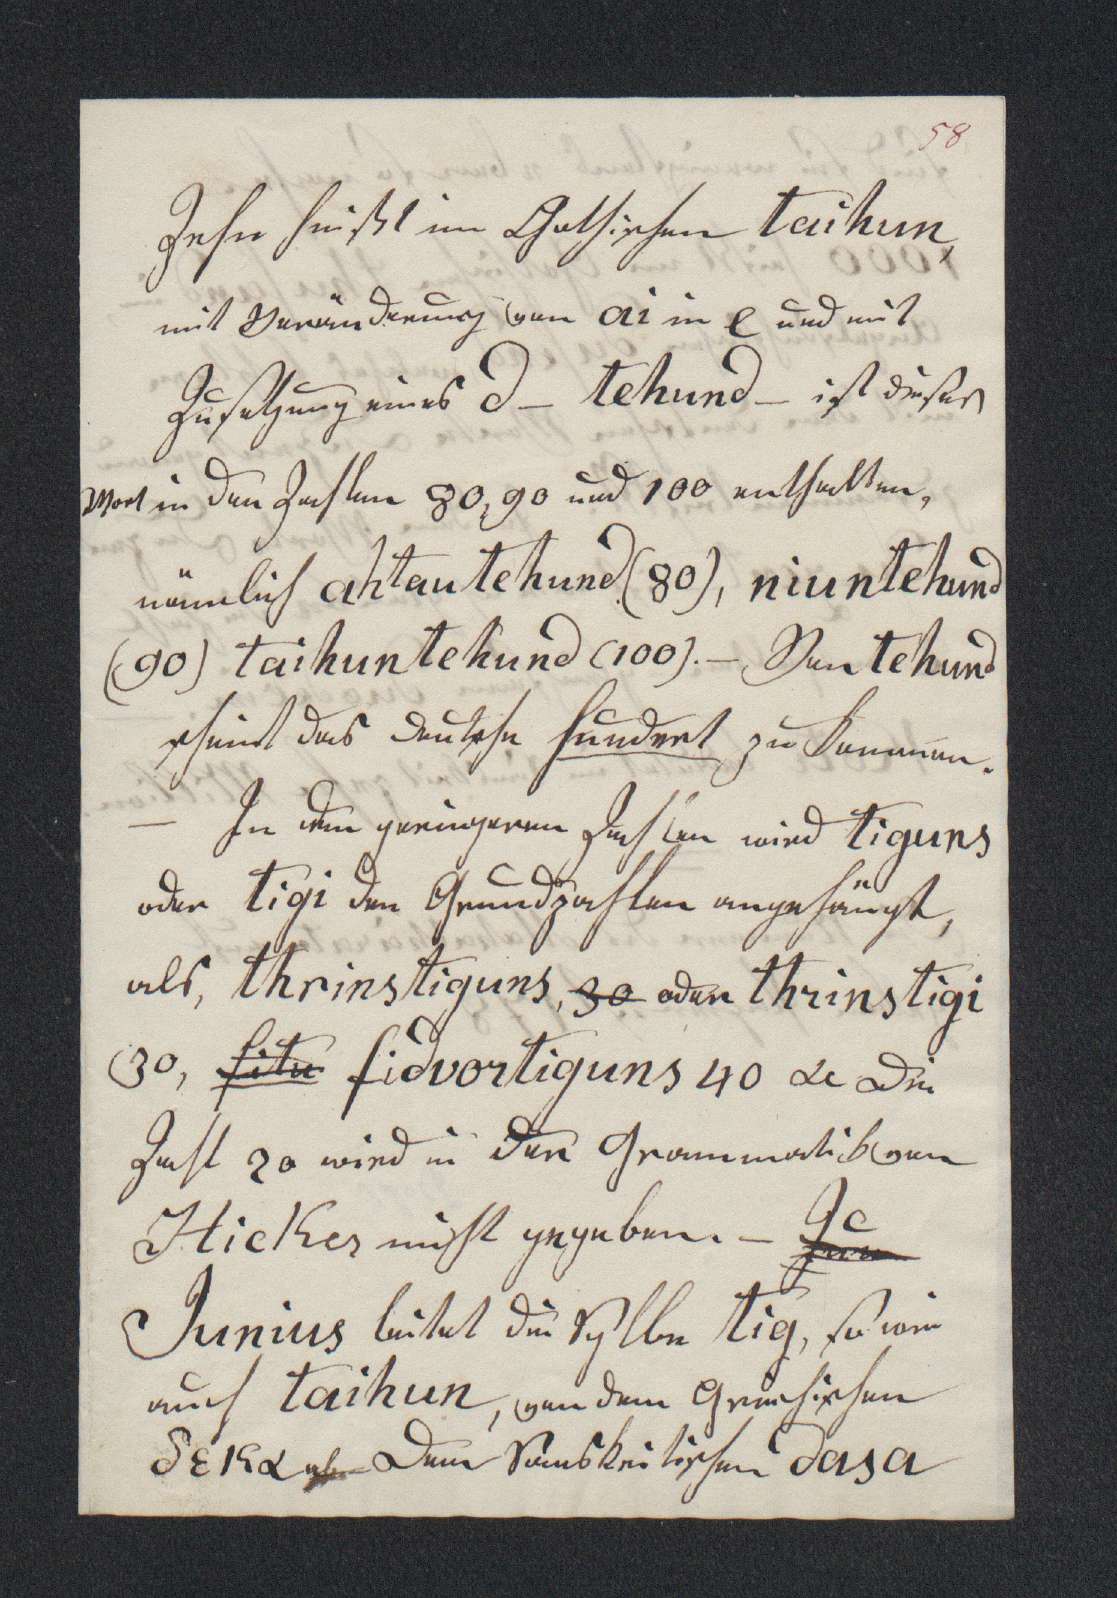 58
Zehn heißt im Gothischen taihun,
mit Veränderung von ai in e und mit
Zusetzung eines d – tehund – ist dieses
Wort in den Zahlen 80, 90 und 100 enthalten,
nämlich ahtautehund (80), niuntehund
(90) taihuntehund (100). – Von tehund
scheint das deutsche hundert zu kommen.
– In den geringeren Zahlen wird tiguns
oder tigi den Grundzahlen angehängt,
als, thrinstiguns, 30 oder thrinstigi
(30, fitu fidvortiguns 40 &c Die
Zahl 20 wird in der Grammatik von
Hickes nicht gegeben. –
Junius leitet die Sylbe tig, so wie
auch taihun, von dem Griechischen
δεκα dem Sanskritischen dasa